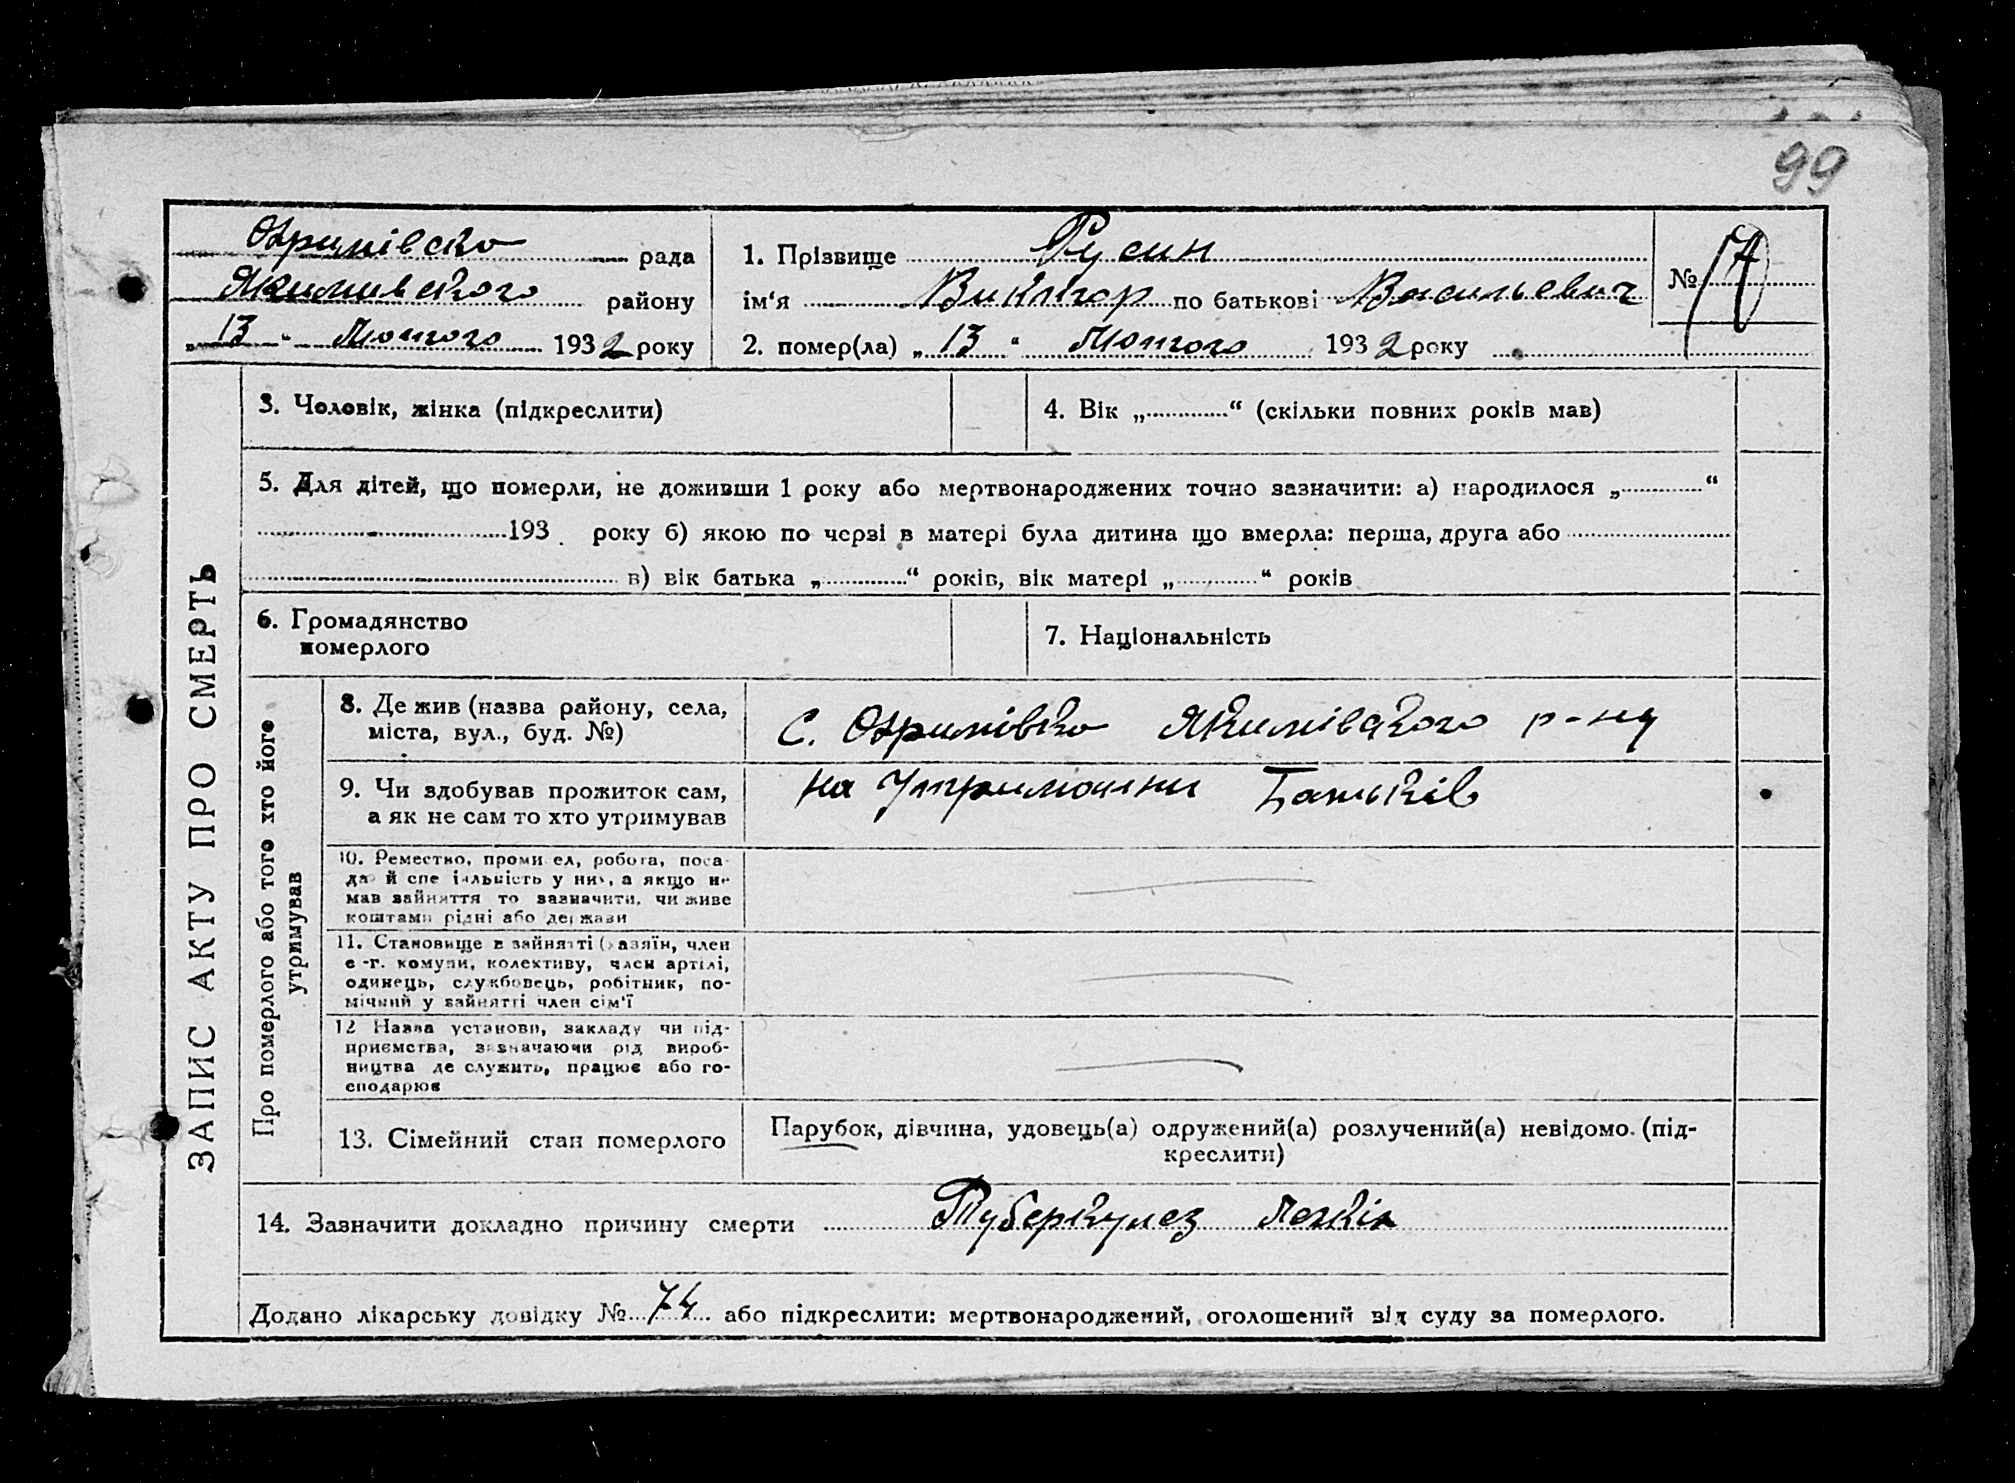 99
Охримівсько рада
Якимивского району
„ 13 " Лютого 1932 року
1. Прізвище Русин
ім'я Виктор по батькові Васильевич
2. помер(ла) „ 13 " Лютого 1932 року
№
ЗАПИС АКТУ ПРО СМЕРТЬ
3. Чоловік, жінка (підкреслити)
4. Вік „ " (скільки повних років мав)
5. Для дітей, що померли, не доживши 1 року або мертвонароджених точно зазначити: а) народилося „ "
193 року б) якою по черзі в матері була дитина що вмерла: перша, друга або
в) вік батька „ " років, вік матері „ " років
6. Громадянство
померлого
7. Національність
Про померлого або того хто його
утримував
8. Де жив (назва району, села,
міста, вул., буд. №)
с. Охримівко Якимівского р-ну
9. Чи здобував прожиток сам,
а як не сам то хто утримував
на Утриманни Батьків
10. Ремество, промисел, робота, поса-
да й спеціяльність у них, а якщо не
мав зайняття то зазначити, чи живе
коштами рідні або держави
11. Становище в зайнятті (хазяїн, член
с-г. комуни, колективу, член артілі,
одинець, службовець, робітник, по-
мічний у зайнятті член сім'ї
12 Назва установи, закладу чи під-
приємства, зазначаючи рід вироб-
ництва де служить, працює або го-
сподарює
13. Сімейний стан померлого
Парубок, дівчина, удовець(а) одружений(а) розлучений(а) невідомо. (під-
креслити)
14. Зазначити докладно причину смерти Туберкулез Легкіх
Додано лікарську довідку № 74 або підкреслити: мертвонароджений, оголошений від суду за померлого.